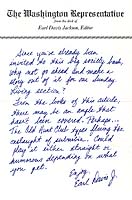 The Washington Representative
from the desk of
Earl Davis Jackson, Editor
Since you've already been
invited to this big society bash,
why not go ahead and make a
story out of it for our Sunday
Living section?
From the looks of this article,
there may be an angle that
hasn't been covered. Perhaps...
The Old Hunt Club dyes filling the
onslaught of suburbia. Could
play it either straight or
humorous depending on what
you get.
Enjoy,
Earl Davis J.